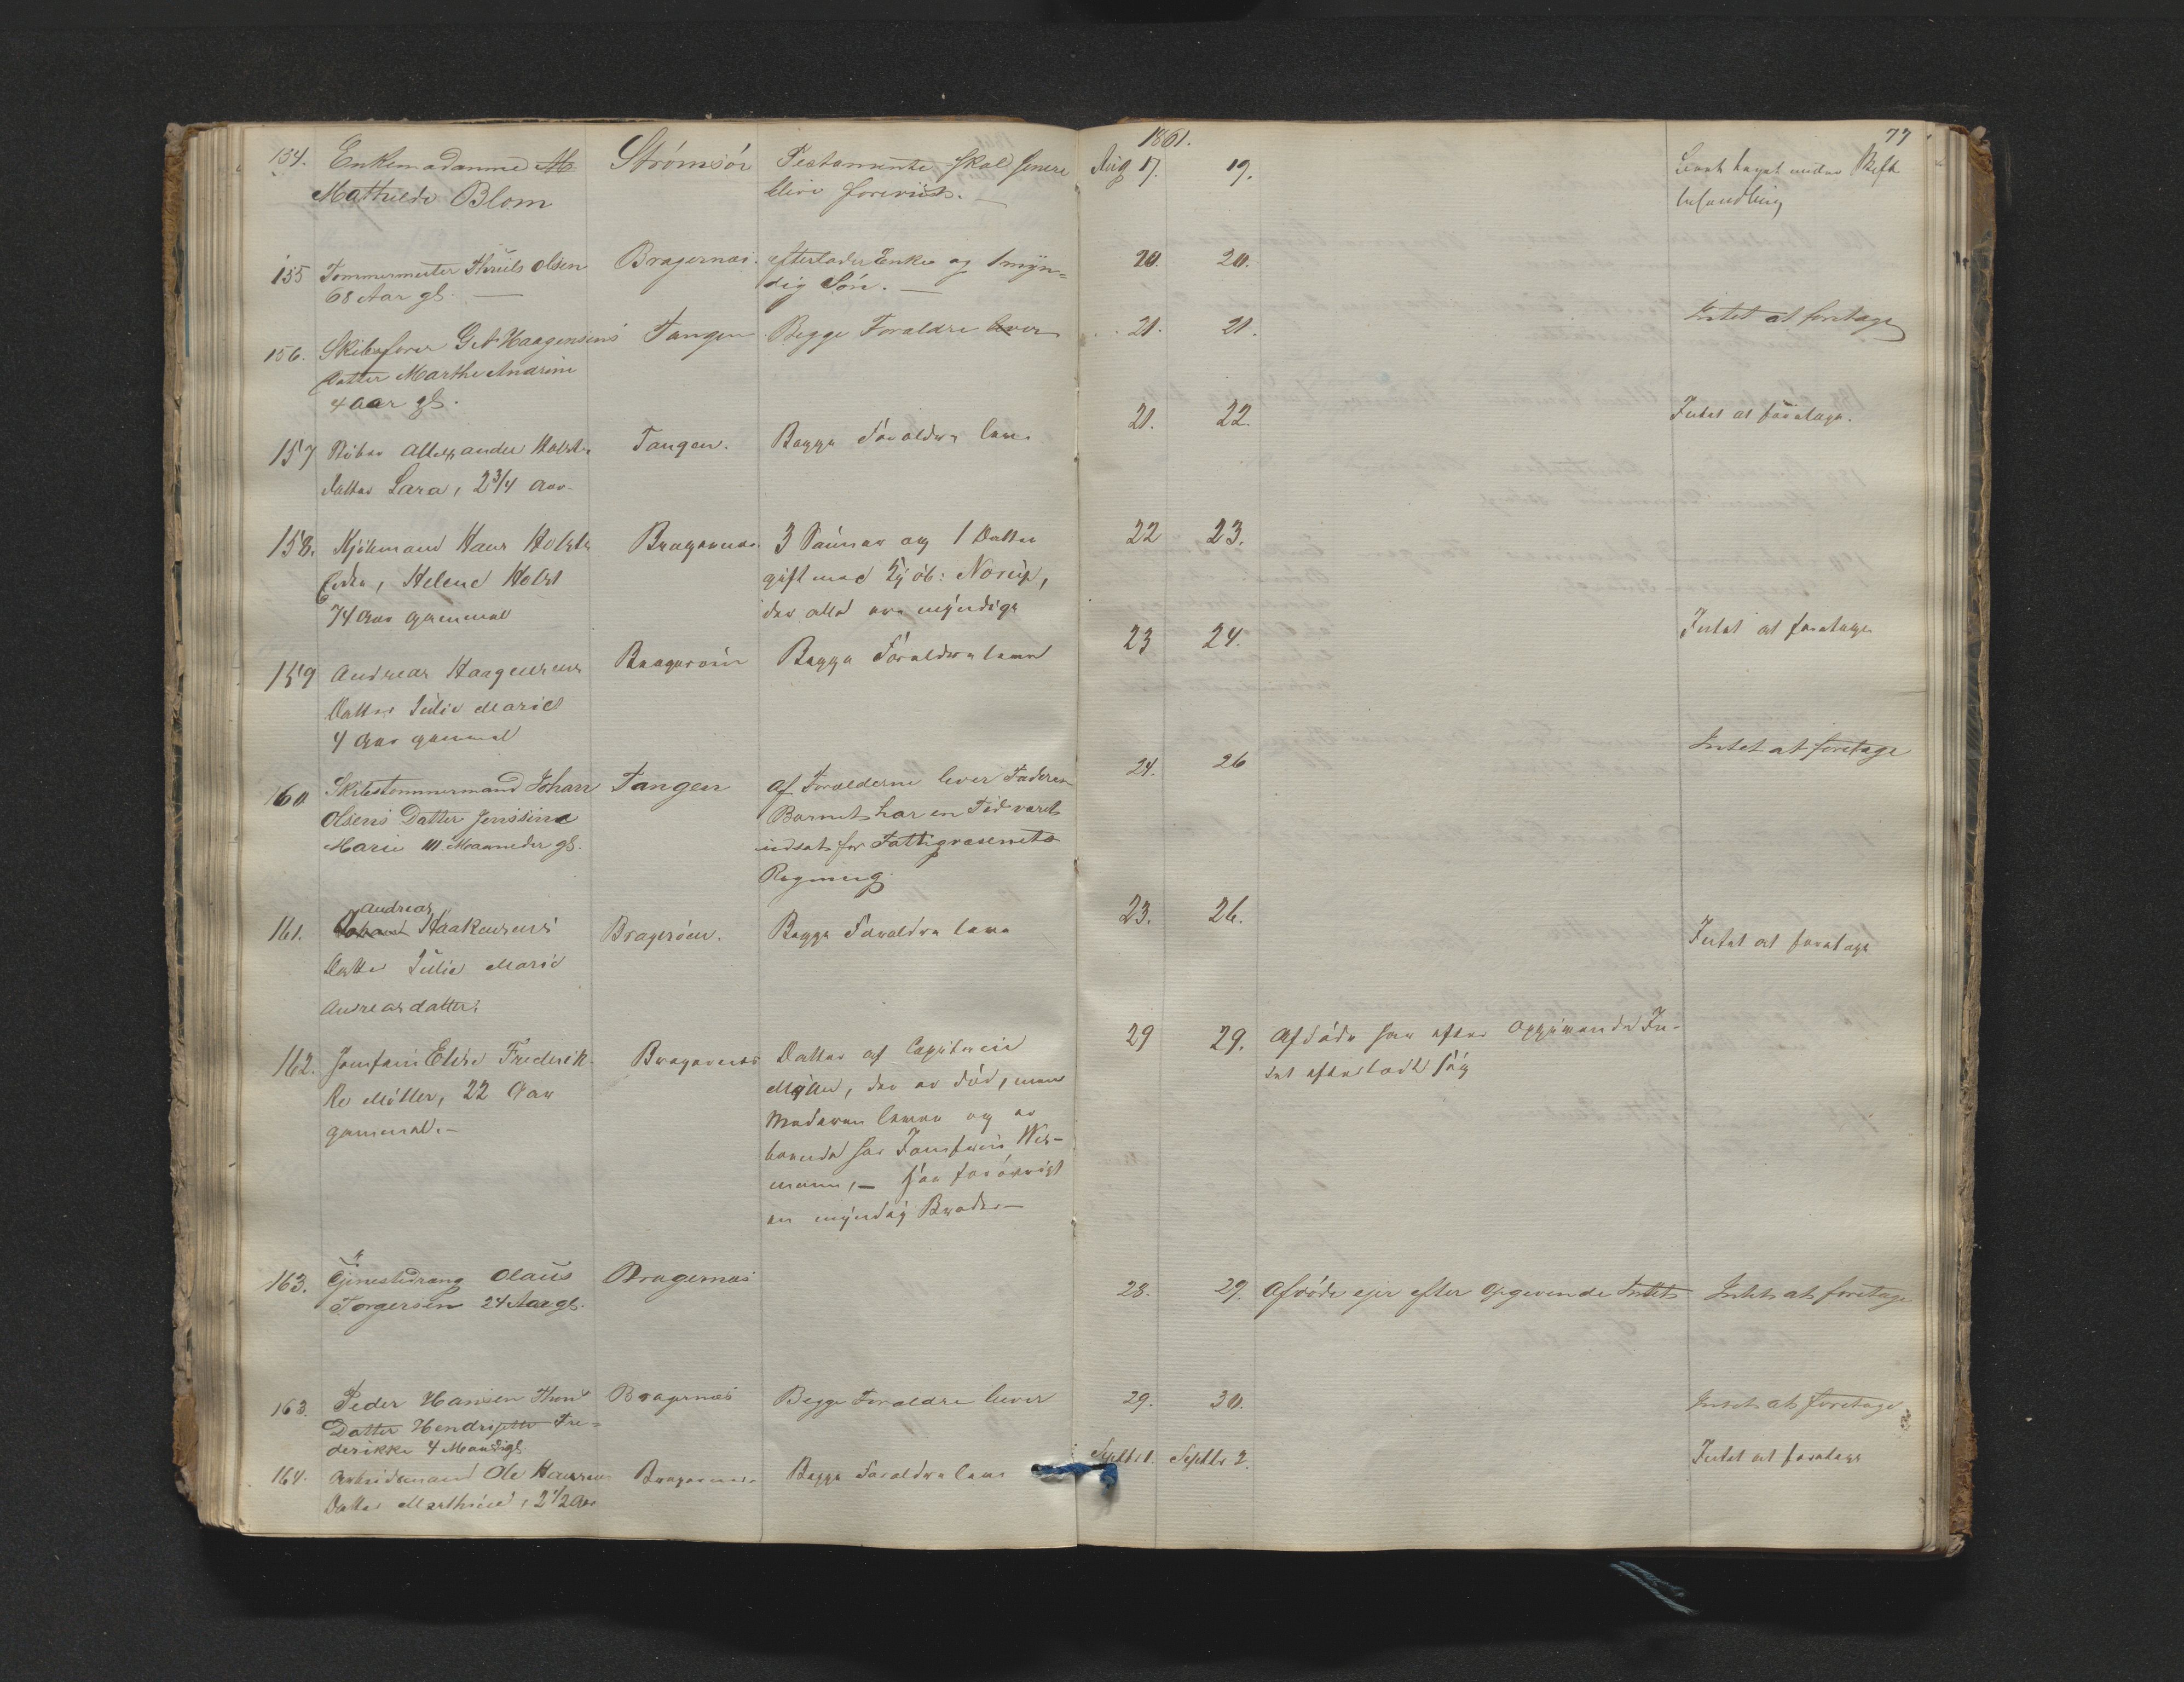 1861.
77
154. Enkemadamme M Strømsøe Testamente skal senere Aug 17. 19. taget under Skifte
Mathilde Blom blive foreviist. behandling
155 Tømmermester Thruls Olsen Bragernæs. efterlader Enke og 1 myn= 20. 20.
68 Aar gl. dig Søn.
156. Skibsfører G A Haagensens Tangen Begge Forældre lever 21. 21. Intet at foretage
Datter Marthe Andrine
4 Aar gl.
157 Allexander Holst Tangen. Begge Forældre leve 21. 22. Intet at foretage.
datter Lara, 2 3/4 Aar
158. Kjøbmand Hans Holsts Bragernæs. 3 Sønner og 1 Datter 22 23.
Enke, Helene Holst gift med Norup,
74 Aar gammel der alle ere myndige
159 Andreas Haagensens Bragerøen Begge Forældre leve 23 24. Intet at foretage
Datter Julie Marie
4 Aar gammel
160 Skibstømmermand Johan Tangen Af Forælderne lever Faderen 24. 26 Intet at foretage
Olsens Datter Jenssine Barnet har en Tid været
Marie Maaneder gl. indsat for Fattigvæsenets
Regning
Andreas
161. Johan Haakensens Bragerøen. Begge Forældre leve 23. 26. Intet at foretage
Datter Julie Marie
Andreasdatter.
162. Jomfru Elise Frederik- Bragernæs Datter af Capitain 29 29. Afdøde har efter Opgivende In-
ke Møller, 22 Aar Møller, der er død, men tet efterladt sig
gammel.- Moderen lever og er
boende hos Jomfru Wis-
mann,- har forøvrigt
en myndig Broder-
163. Tjenestedreng Olaus Bragernæs 28. 29. Afdøde ejer efter Opgivende Intet Intet at foretage
Torgersen 24 Aar gl.
163. Peder Hansen Thons Bragernæs Begge Forældre lever 29. 30. Intet at foretage
Datter Hendrijette Fre=
derikke 4 Maandr gl.
164. Arbeidsmand Ole Hansens Bragernæs. Begge Forældre leve Septbr 1. Septbr 2. Intet at foretage
Datter Marthine, 2 1/2 Aar